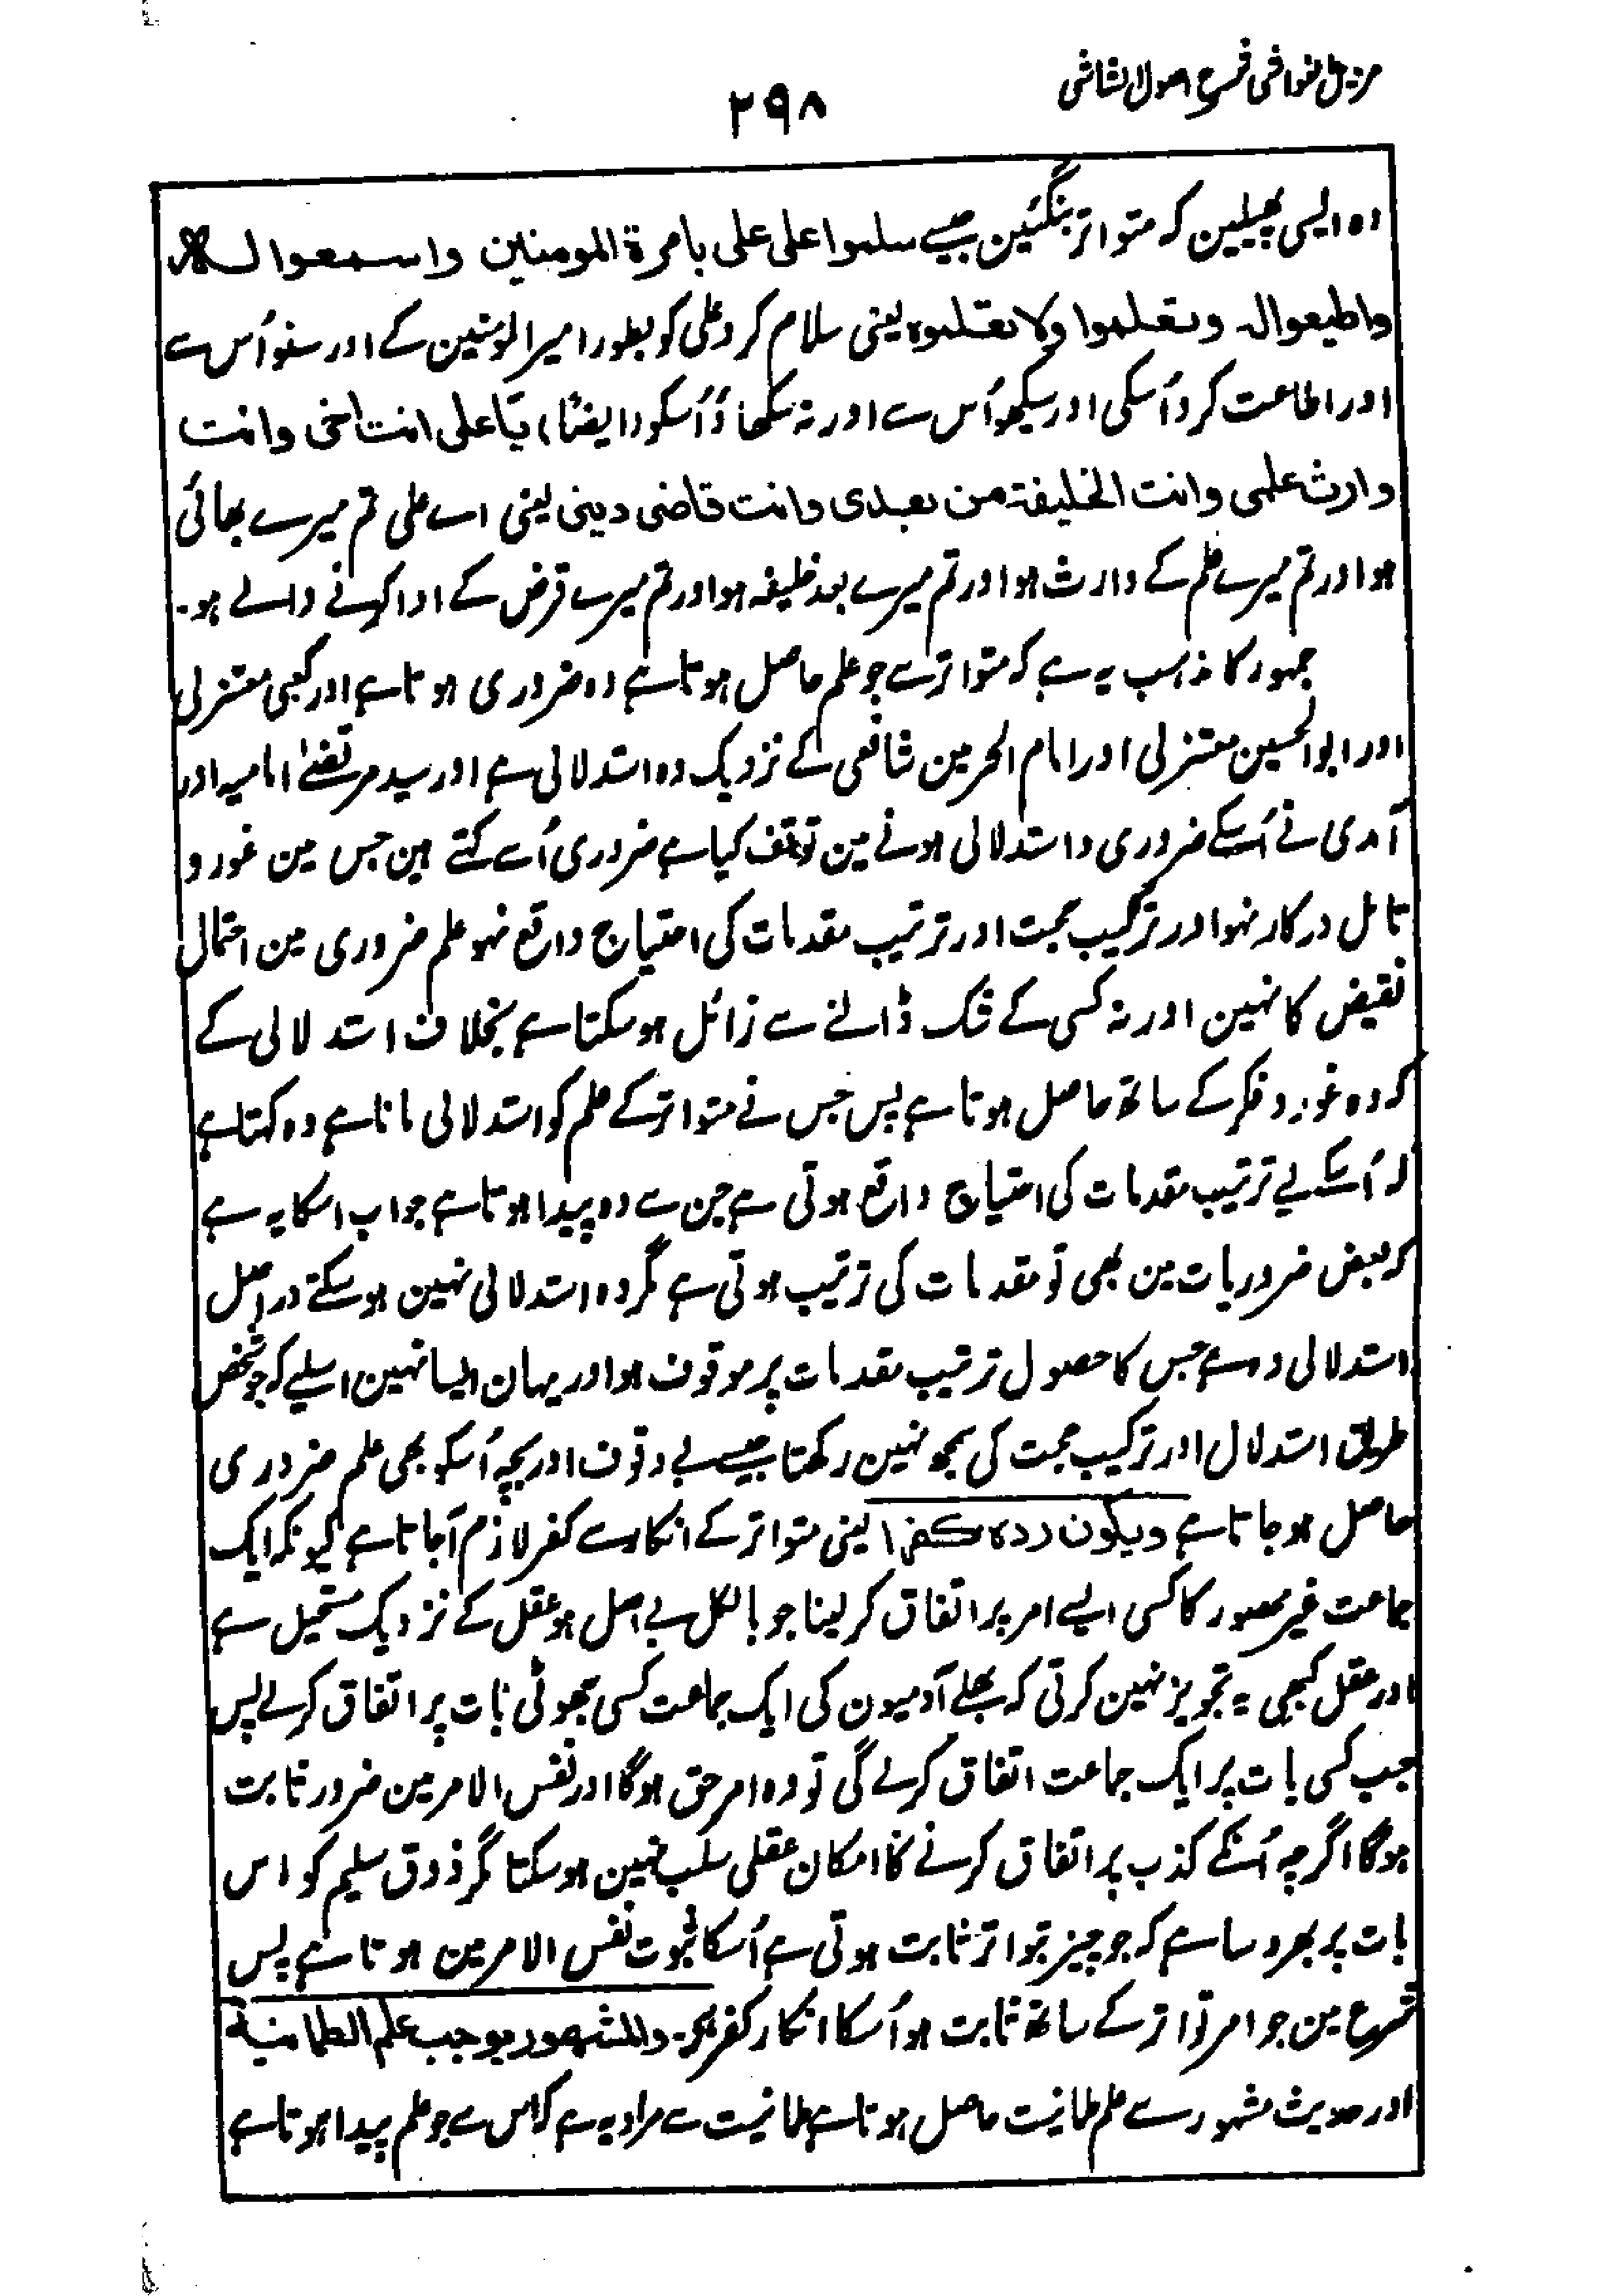 مزیل الغواشی شرح اصول الشاشی
۲۹۸
وہ ایسی پھیلین کہ متواتر بنگئین جیسے سلموا علی علی بامرة المومنین واسمعوا لہ
واطیعوا لہ وتعلموا ولا تعلموہ یعنی سلام کرو علی کو بطور امیر المومنین کے اور سنو اُس سے
اور اطاعت کرو اُسکی اور سیکھو اُس سے اور نہ سکھاؤ اُسکو (ایضًا) یا علی انت اخی وانت
وارث علمی وانت الخلیفۃ من بعدی وانت قاضی دینی یعنی اے علی تم میرے بھائی
ہو اور تم میرے علم کے وارث ہو اور تم میرے بعد خلیفہ ہو اور تم میرے قرض کے ادا کرنے والے ہو۔
جمہور کا مذہب یہ ہے کہ متواتر سے جو علم حاصل ہوتا ہے وہ ضروری ہوتا ہے اور کعبی معتزلی
اور ابو الحسین معتزلی اور امام الحرمین شافعی کے نزدیک وہ استدلالی ہے اور سید مرتضےٰ امامیہ اور
آمدی نے اُسکے ضروری و استدلالی ہونے مین توقف کیا ہے ضروری اُسے کہتے ہین جس مین غور و
تامل درکار نہو اور ترکیب حجت اور ترتیب مقدمات کی احتیاج واقع نہو علم ضروری مین احتمال
نقیض کا نہین اور نہ کسی کے شک ڈالنے سے زائل ہو سکتا ہے بخلاف استدلالی کے
کہ وہ غور و فکر کے ساتھ حاصل ہوتا ہے پس جس نے متواتر کے علم کو استدلالی مانا ہے وہ کہتا ہے
کہ اُسکے لیے ترتیب مقدمات کی احتیاج واقع ہوتی ہے جن سے وہ پیدا ہوتا ہے جواب اسکا یہ ہے
کہ بعض ضروریات مین بھی تو مقدمات کی ترتیب ہوتی ہے مگر وہ استدلالی نہین ہو سکتے دراصل
استدلالی وہ ہے جس کا حصول ترتیب مقدمات پر موقوف ہو اور یہان ایسا نہین اسلیے کہ جو شخص
طریق استدلال اور ترکیب حجت کی سمجھ نہین رکھتا جیسے بے وقوف اور بچہ اُسکو بھی علم ضروری
حاصل ہو جاتا ہے ویکون ردہ کفرا یعنی متواتر کے انکار سے کفر لازم آجاتا ہے کیونکہ ایک
جماعت غیر محصور کا کسی ایسے امر پر اتفاق کر لینا جو بالکل بے اصل ہو عقل کے نزدیک مستحیل ہے
اور عقل کبھی یہ تجویز نہین کرتی کہ بھلے آدمیون کی ایک جماعت کسی جھوٹی بات پر اتفاق کرلے پس
جب کسی بات پر ایک جماعت اتفاق کرلے گی تو وہ امر حق ہوگا اور نفس الامر مین ضرور ثابت
ہوگا اگرچہ اُنکے کذب پر اتفاق کرنے کا امکان عقلی سلب نہین ہو سکتا مگر ذوق سلیم کو اس
بات پر بھروسا ہے کہ جو چیز بتواتر ثابت ہوتی ہے اُسکا ثبوت نفس الامر مین ہوتا ہے پس
شرع مین جو امر تواتر کے ساتھ ثابت ہو اُسکا انکار کفر ہے۔ والمشہور یوجب علم الطمانیۃ
اور حدیث مشہور سے علم طمانیت حاصل ہوتا ہے طمانیت سے مراد یہ ہے کہ اس سے جو علم پیدا ہوتا ہے